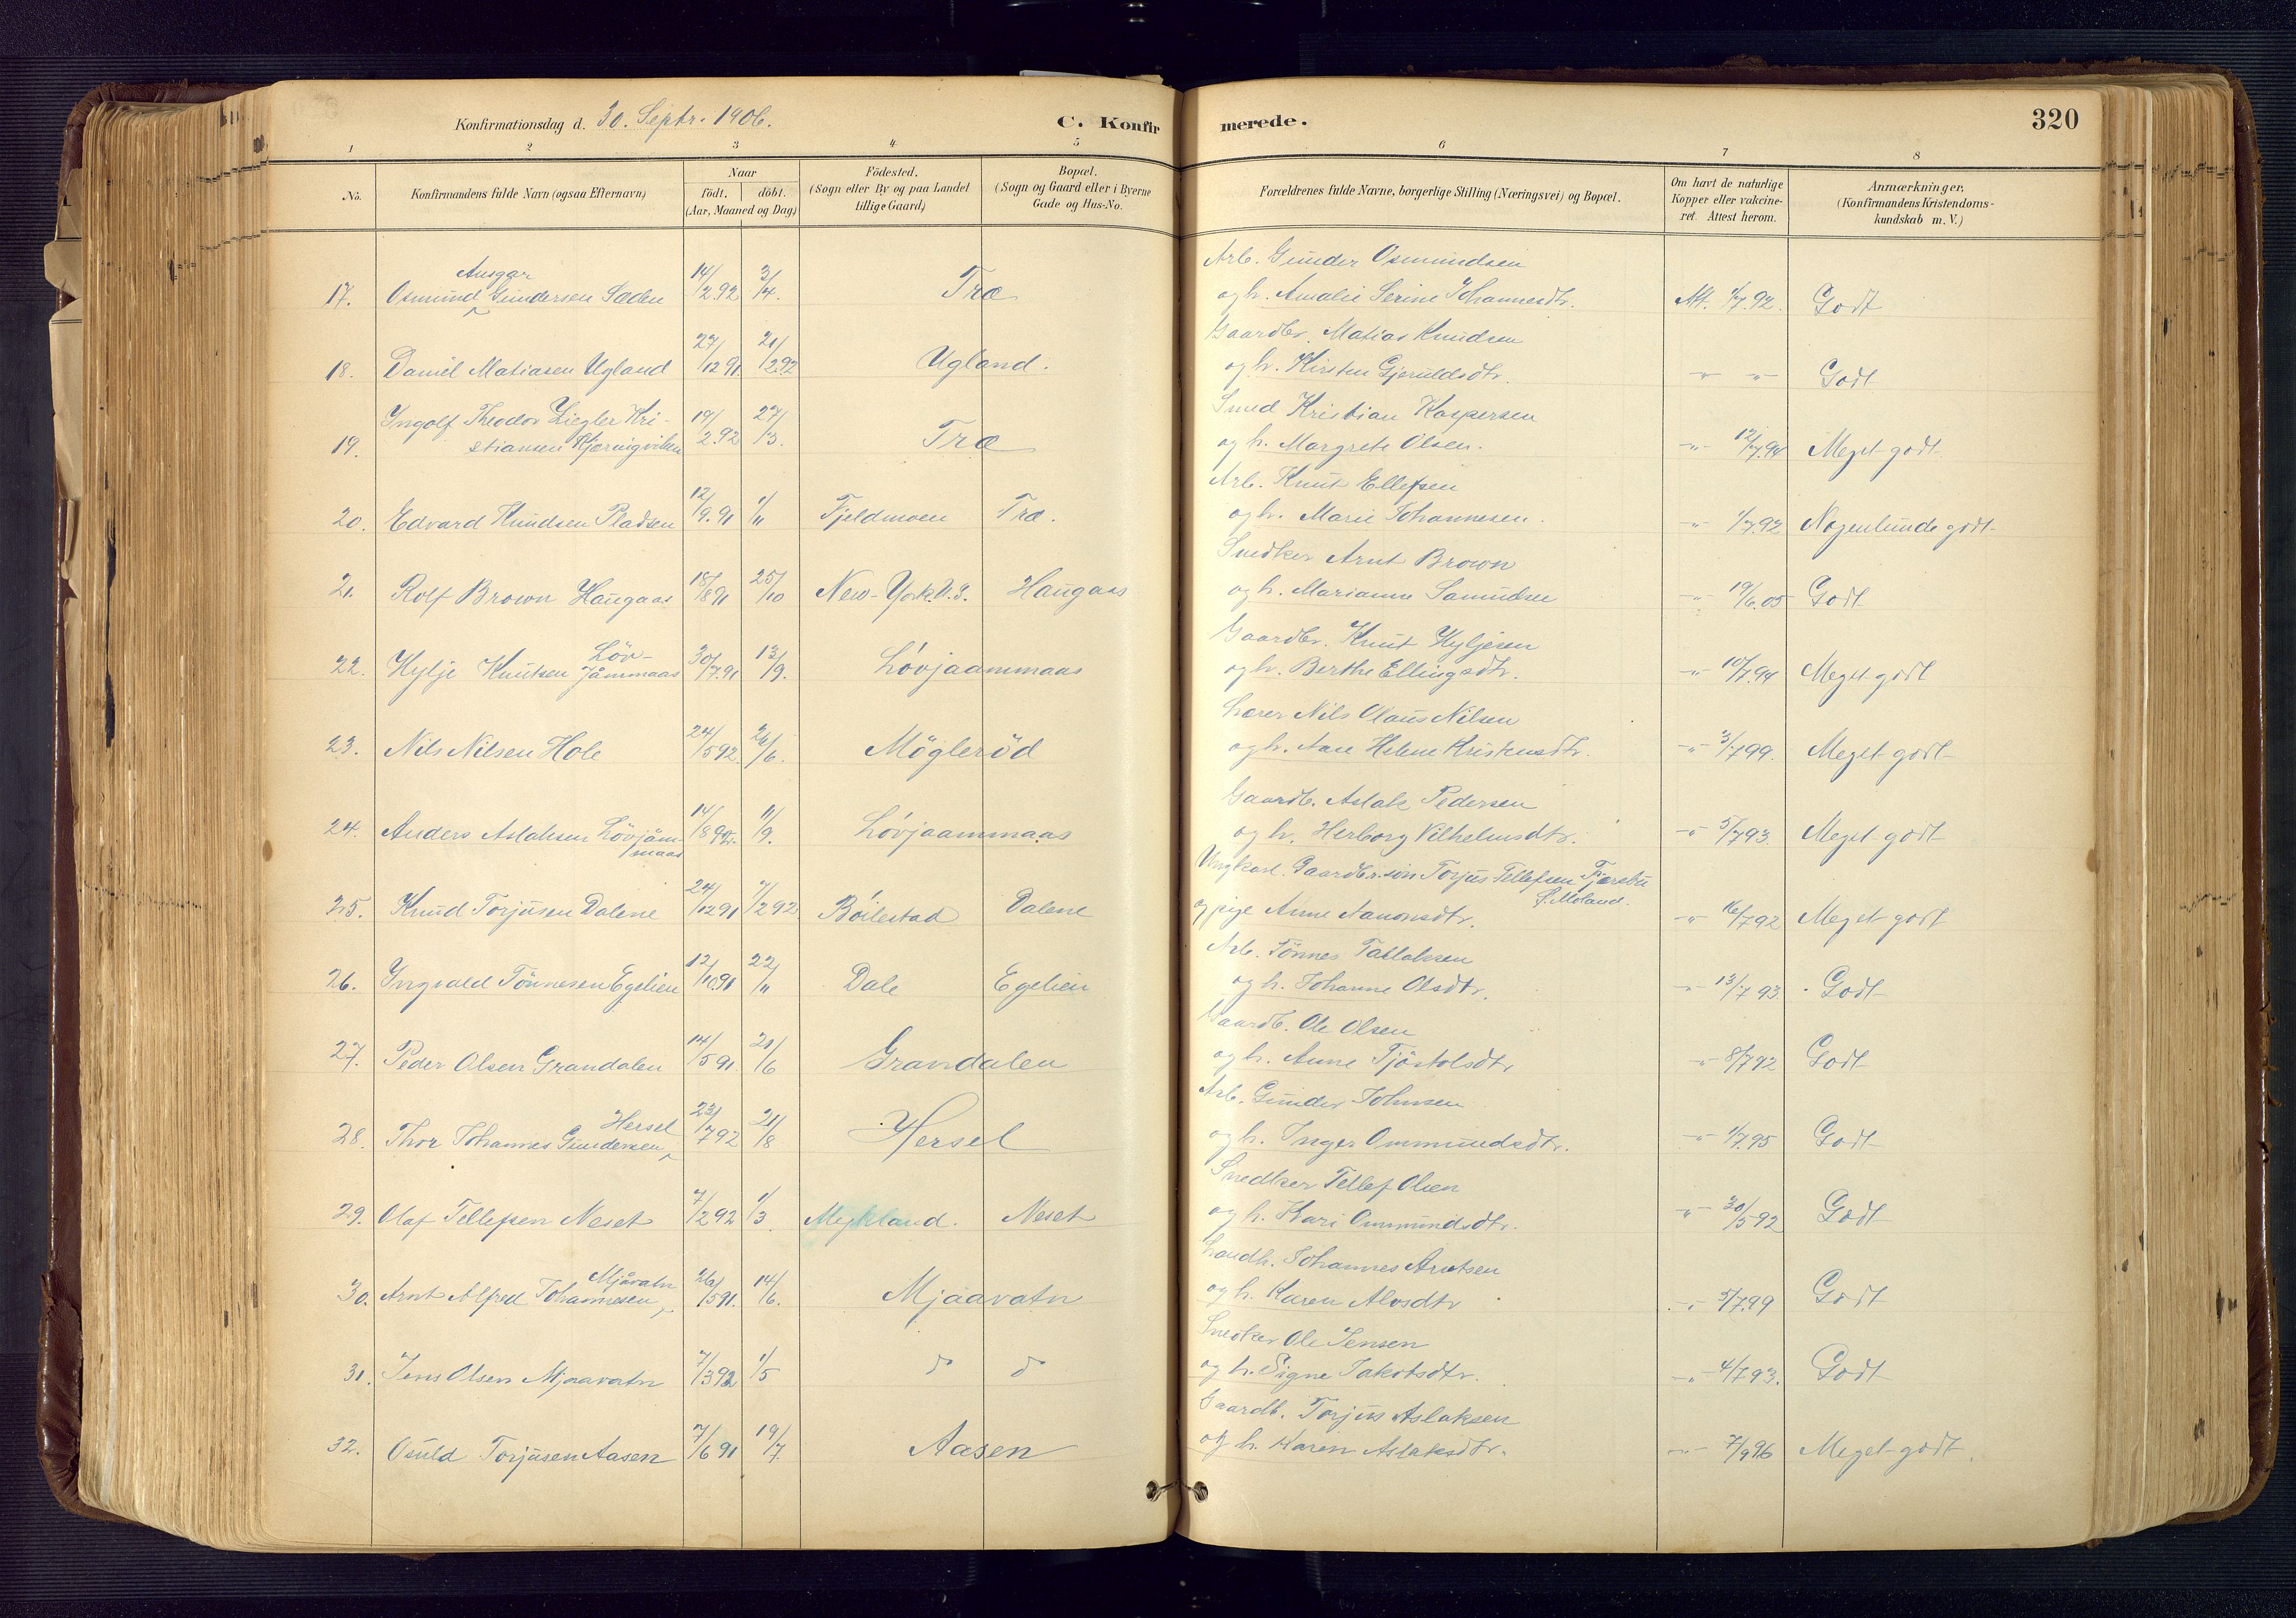 Konfirmationsdag d. 30. Septr. 1906.
C. Konfirmerede.
320
1 2 3 4 5 6 7 8
No.
Konfirmandens fulde Navn (ogsaa Efternavn)
Naar
født. døbt.
(Aar, Maaned og Dag)
Fødested.
(Sogn eller By og paa Landet
tillige Gaard)
Bopæl.
(Sogn og Gaard eller i Byerne
Gade og Hus-No.
Forældrenes fulde Navne, borgerlige Stilling (Næringsvei) og Bopæl.
Om havt de naturlige
Kopper eller vakcine-
ret. Attest herom.
Anmærkninger.
(Konfirmandens Kristendoms-
kundskab m. V.)
Ansgar
17. Osmund Gundersen 14/2 92 3/4. Træ
Arb. Gunder Osmundsen
og h. Amalie Serine Johannesdtr. Att. 1/7.92. Godt
18. Daniel Matiasen Ugland 27/12 91 21/2 92 Ugland.
Gaardbr. Matias Knudsen
og h. Kirsten Gjeruldsdtr. -"- -"- Godt
Yngolf Theodor Ziegler Kri-
19. stiansen Kjærringviken 19/2.92 27/3. Træ
Smed Kristian Kaspersen
og h. Margrete Olsen. -"- 12/7.94 Meget godt
20. Edvard Knudsen Pladsen 12/9.91 1/11 Fjeldmoen Træ.
Arb. Knut Ellefsen
og h. Marie Johannesen. -"- 1/7.92 Nogenlunde godt
21. Rolf Brown Haugaas 18/8 91 25/10 New-York. U.S. Haugaas
Snedker Arnt Brown
og h. Marianne Samudsen -"- 19/6.05 Godt
Löv-
22. Hylje Knutsen jåmmaas 30/7.91 13/9. Lövjaammaas
Gaardbr. Knut Hyljesen
og h. Berthe Ellingsdtr. -"- 10/7.94 Meget godt
23. Nils Nilsen Hole 24/5 92. 26/6. Mögleröd
Lærer Nils Olaus Nilsen
og h. Ane Helene Kristensdtr. -"- 3/7 99. Meget godt
24. Anders Aslaksen Lövjåm-
maas 14/8 92. 11/9. Lövjaammaas
Gaardb. Aslak Pedersen
og h. Herborg Vilhelmsdtr. -"- 5/7 93. Meget godt
25. Knud Torjusen Dalene 24/12 91 7/2 92 Böilestad Dalene
Ungkarl. Gaardbr.søn Torjus Tellefsen Fjærebu
S. Moland.
og pige Anne Aanonsdtr. -"- 16/7 92 Meget godt
26. Yngvald Tönnesen Egelien 12/10 91 22/11 Dale Egelien
Arb. Tönnes Tallaksen
og h. Johanne Olsdtr. -"- 13/7 93. Godt
27. Peder Olsen Grandalen 14/5 91. 21/6 Grandalen
Gaardb. Ole Olsen
og h. Anne Tjöstolsdtr -"- 8/7 92 Godt
Hersel
28. Thor Johannes Gundersen 23/7 92 21/8 Hersel
Arb. Gunder Johnsen
og h. Inger Ommundsdtr. -"- 1/7.95 Godt
29. Olaf Tellefsen Neset 7/2 92 1/3. Mykland. Neset
Snedker Tellef Olsen
og h. Kari Ommundsdtr. -"- 30/5 92 Godt
Mjåvatn
30. Arnt Alfred Johannesen 26/5 91. 14/6. Mjaavatn
Landh. Johannes Arntsen
og h. Karen Alvsdtr -"- 3/7.99 Godt
31. Jens Olsen Mjaavatn 7/3 92 1/5 d d
Snedker Ole Jensen
og h. Signe Jakobsdtr. -"- 4/7 93. Godt
32. Osuld Torjusen Aasen 7/6 91 19/7. Aasen
Gaardb. Torjus Aslaksen
og h. Karen Aslaksdtr. -"- 7/9 96 Meget godt.